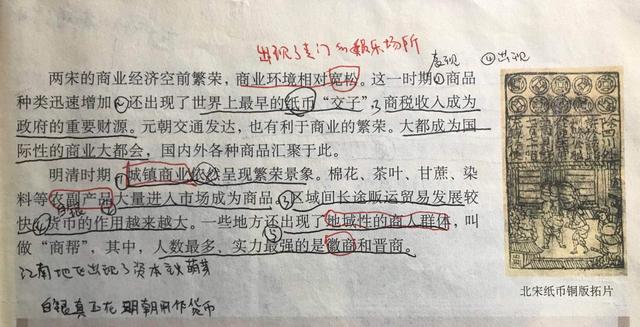 出现了专门的娱乐场所
表现 ④出现
两宋的商业经济空前繁荣，商业环境相对宽松。这一时期①商品
种类迅速增加②还出现了世界上最早的纸币“交子”③商税收入成为
政府的重要财源。元朝交通发达，也有利于商业的繁荣。大都成为国
际性的商业大都会，国内外各种商品汇聚于此。
明清时期①城镇商业依然呈现繁荣景象。棉花、茶叶、甘蔗、染
料等农副产品②大量进入市场成为商品。③区域间长途贩运贸易发展较
白银
快④货币的作用越来越大。一些地方还出现了⑤地域性的商人群体，叫
做“商帮”，其中，人数最多、实力最强的是徽商和晋商。
江南地区出现了资本主义萌芽
白银真正在明朝用作货币
北宋纸币铜版拓片